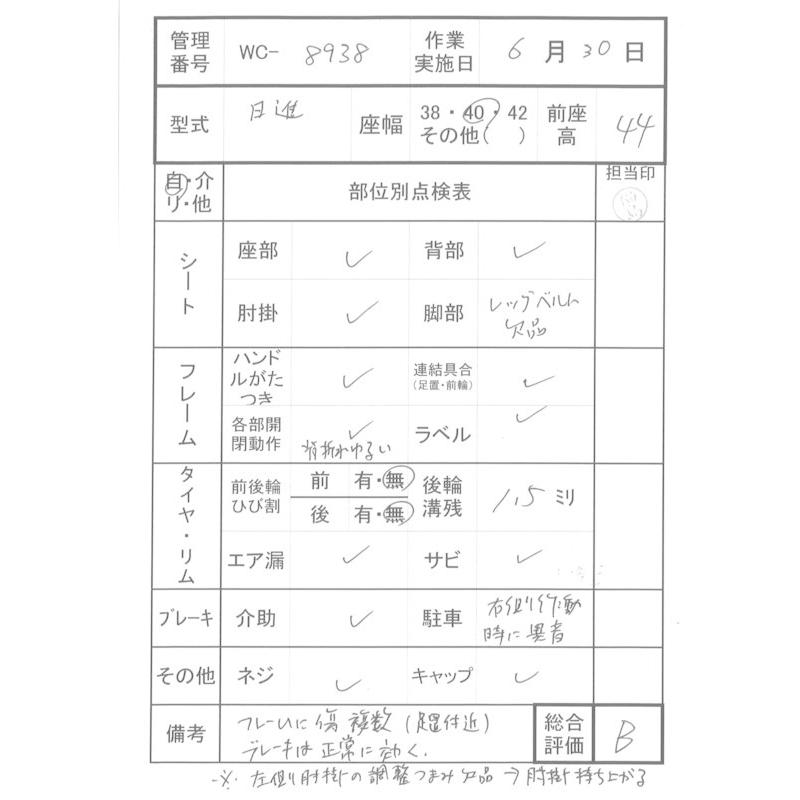 管理番号 WC- 8938 作業実施日 6月30日
型式 日進 座幅 38・40・42 その他( ) 前座高 44
自・介・リ・他 部位別点検表 担当印
シート 座部 ✓ 背部 ✓
肘掛 ✓ 脚部 レッグベルト欠品
フレーム ハンドルがたつき ✓ 連結具合(足置・前輪) ✓
各部開閉動作 ✓ 背折れゆるい ラベル ✓
タイヤ・リム 前後輪ひび割 前 有・無 後輪溝残 1,5 ミリ
後 有・無
エア漏 ✓ サビ ✓
ブレーキ 介助 ✓ 駐車 右側作動時に異音
その他 ネジ ✓ キャップ ✓
備考 フレームに傷複数(足置付近) 総合評価 B
ブレーキは正常に効く.
※ 左側肘掛の調整つまみ欠品→肘掛持ち上がる